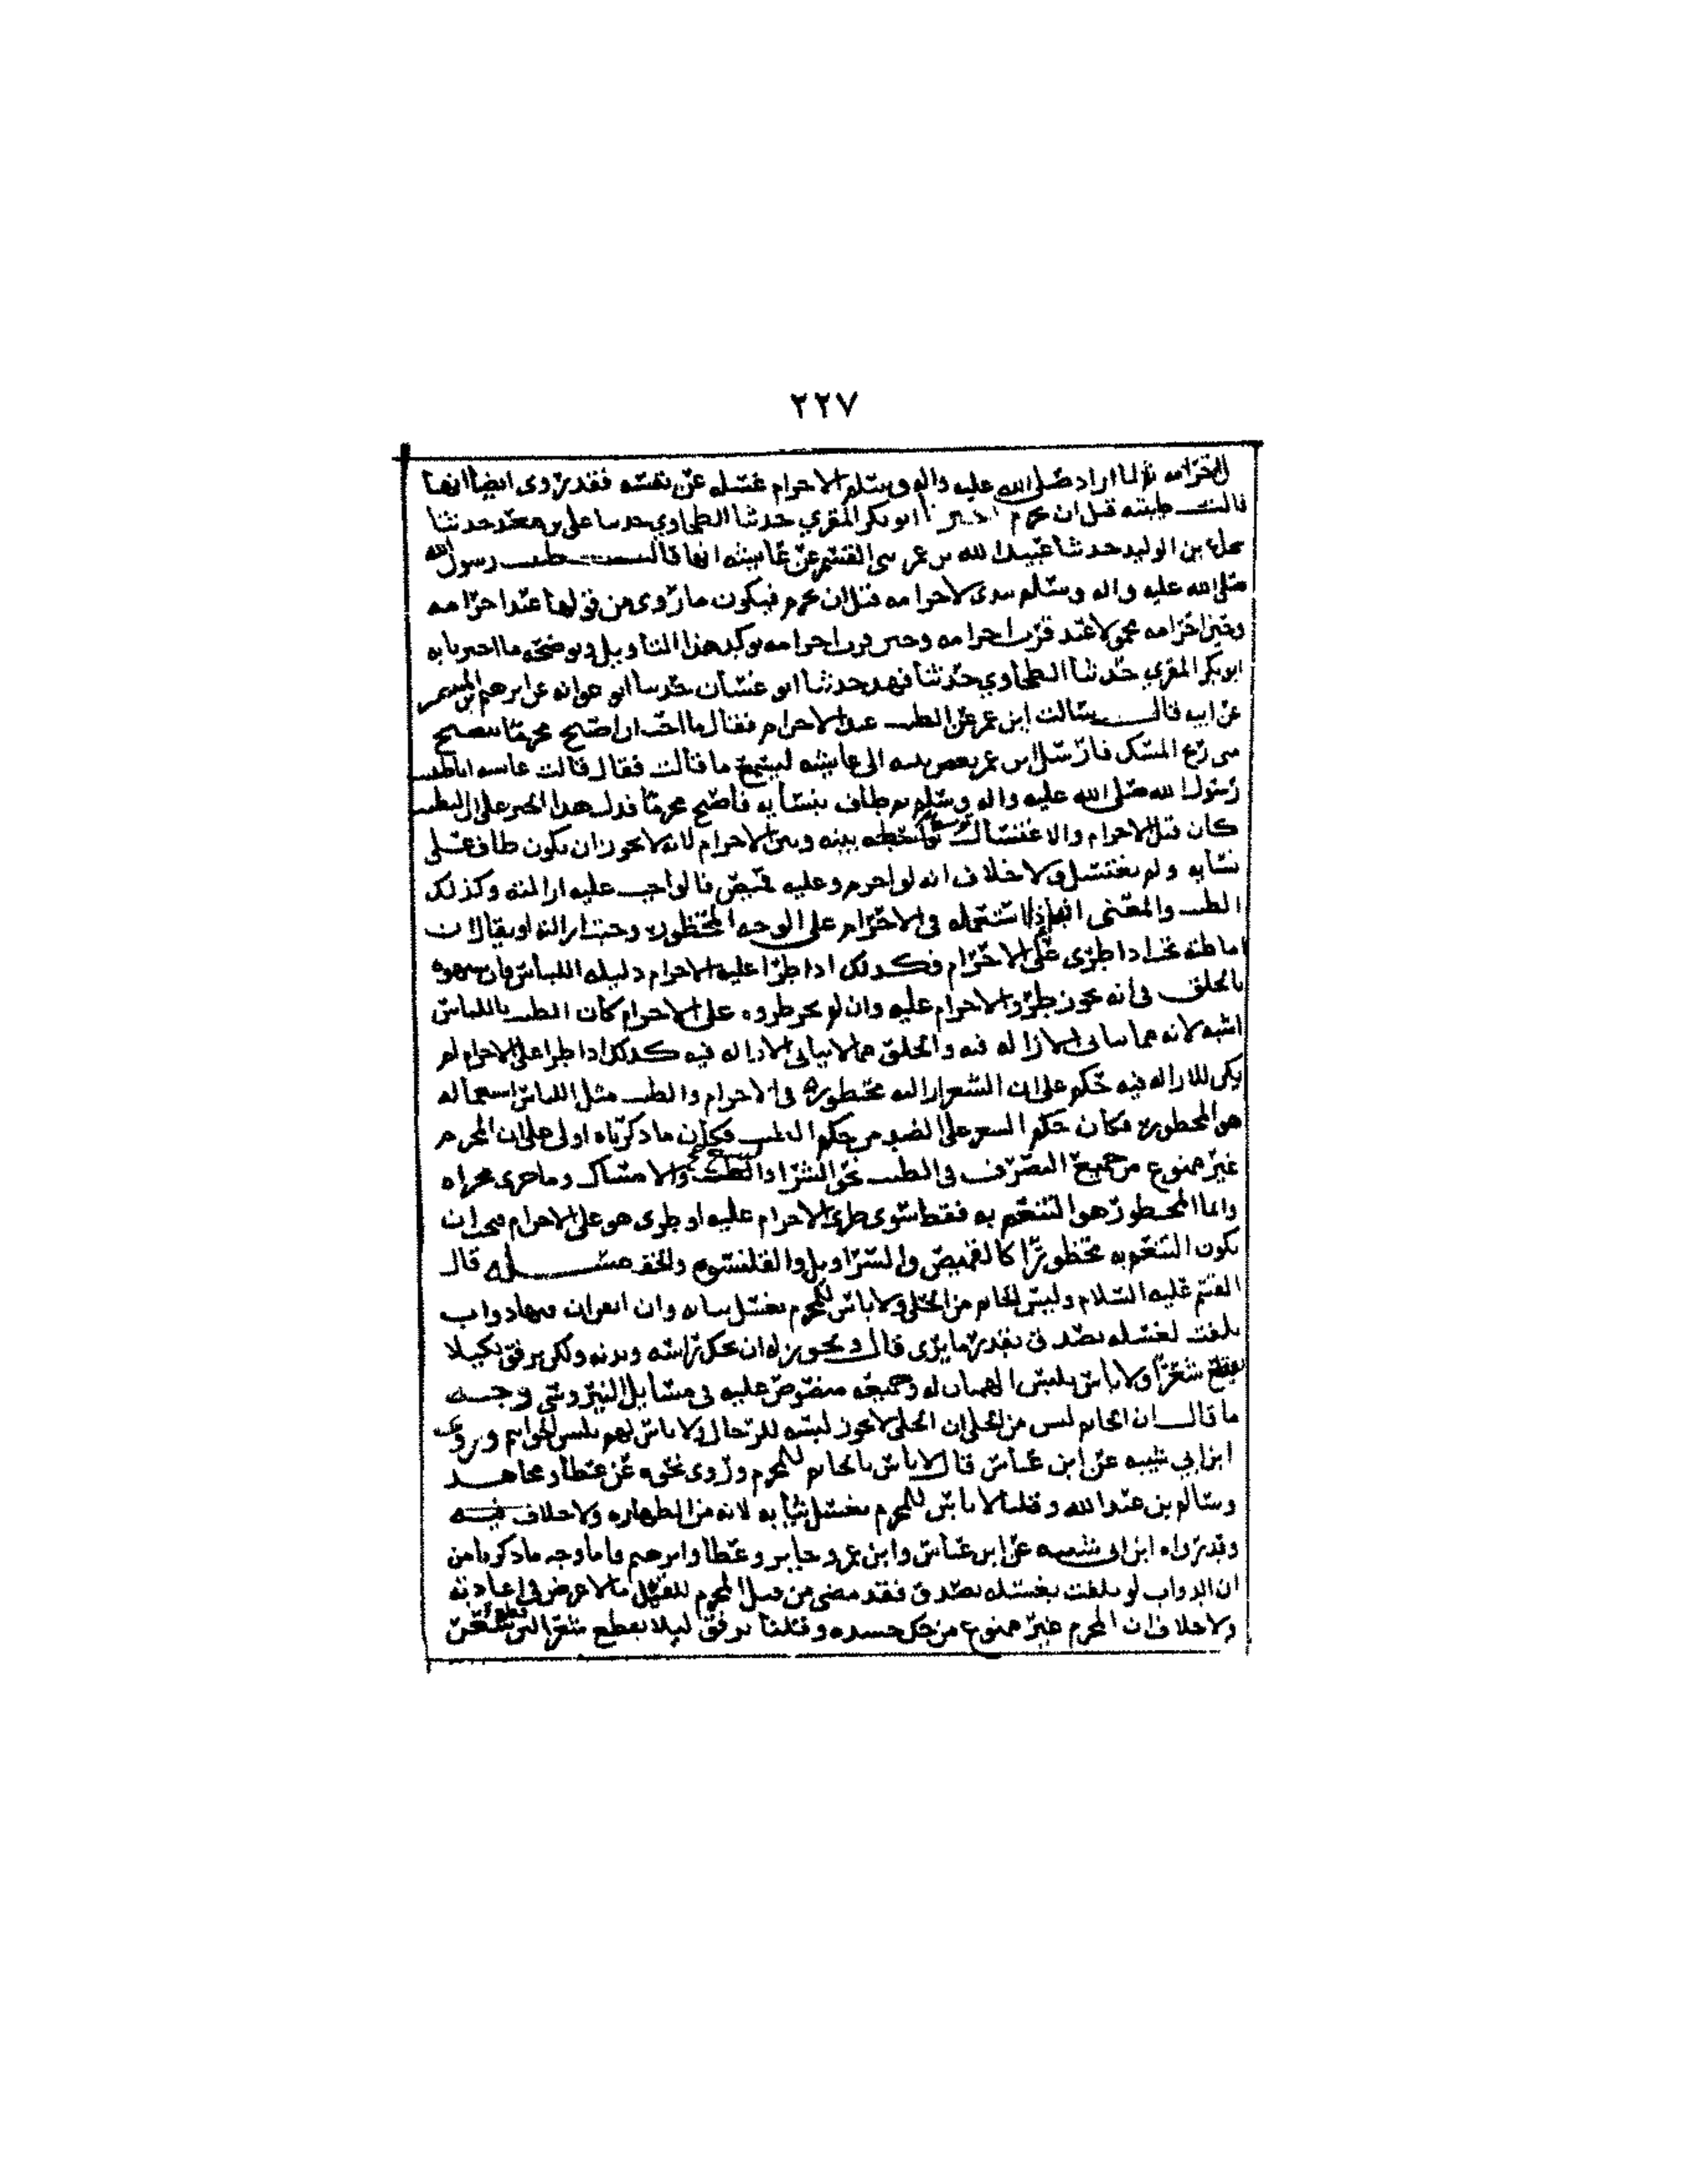 ٢٢٧
لاحرامه ثم لما اراد صلى الله عليه واله وسلم الاحرام غسله عن نفسه فقد روى ايضا انها
قالت طيبته قبل ان يحرم اخبرنا ابو بكر المقري حدثنا الطحاوي حدثنا علي بن معبد حدثنا
شجاع بن الوليد حدثنا عبيد الله بن عمر عن القسم عن عايشه انها قالت طيبت رسول الله
صلى الله عليه واله وسلم بيدى لاحرامه قبل ان يحرم فيكون ما روى من قولها عند احرامه
وحين احرامه محمولا عند قرب احرامه وحين قرب احرامه يوكد هذا التاويل ويوضحه ما اخبرنا به
ابو بكر المقري حدثنا الطحاوي حدثنا فهد حدثنا ابو غسان حدثنا ابو عوانه عن ابرهيم بن المنتشر
عن ابيه قال سالت ابن عمر عن الطيب عند الاحرام فقال ما احب ان اصبح محرما ينضح
منى ريح المسك فارسل ابن عمر بعض بنيه الى عايشه ليسمع ما قالت فقال قالت عايشه انا طيبت
رسول الله صلى الله عليه واله وسلم ثم طاف بنسايه فاصبح محرما فدل هذا الخبر على ان الطيب
كان قبل الاحرام والاغتسال بينه وبين الاحرام لانه لا يجوز ان يكون طاف على
نسايه ولم يغتسل ولا خلاف انه لو احرم وعليه قميص فالواجب عليه ازالته وكذلك
الطيب والمعنى انه اذا استعمله في الاحرام على الوجه المحظور وجبت ازالته او يقال ان
اماطته تجب اذا طرى على الاحرام فكذلك اذا طرا عليه الاحرام دليله اللباس فان شبهوه
بالحلق في انه يجوز طرو الاحرام عليه وان لم يجز طروه على الاحرام كان الطيب باللباس
اشبه لانه مما يتاتى الازاله فيه والحلق مما لا يتاتى الازاله فيه كذلك اذا طرا على الاحرام لم
يكن للازاله فيه حكم على ان الشعر ازالته محظوره في الاحرام والطيب مثل اللباس استعماله
هو المحظور فكان حكم الشعر على الضد من حكم الطيب فكان ما ذكرناه اولى على ان المحرم
غير ممنوع من جميع التصرف في الطيب نحو الشرا والامساك وما جرى مجراه
وانما المحظور هو التنعم به فقط سوى طرى الاحرام عليه او طرى هو على الاحرام فيجب ان
يكون التنعم به محظورا كالقميص والسراويل والقلنسوه والخف مسله قال
القسم عليه السلام وليس الخاتم من الحلي ولا باس للمحرم بغسل ثيابه وان اتفق ان فيها دواب
تلفت لغسله تصدق بقدر ما يرى قال ويجوز له ان يحك راسه وبدنه ولكن برفق لكيلا
يقطع شعرا ولا باس بلبس الهميان له وجميعه منصوص عليه في مسايل النيروسي وجه
ما قال ان الخاتم ليس من الحلي ان الحلي لا يجوز لبسه للرجال ولا باس لهم بلبس الخواتم وروى
ابن ابي شيبه عن ابن عباس قال لا باس بالخاتم للمحرم وروى نحوه عن عطا ومجاهد
وسالم بن عبد الله وقلنا لا باس للمحرم بغسل ثيابه لانه من الطهاره ولا خلاف فيه
وقد رواه ابن ابي شيبه عن ابن عباس وابن عمر وجابر وعطا وابرهيم واما وجه ما ذكرنا من
ان الدواب لو تلفت بغسله تصدق فقد مضى من قتل المحرم للقمل ما لا غرض في اعادته
ولا خلاف ان المحرم غير ممنوع من حك جسده وقلنا برفق ليلا يقطع شعرا